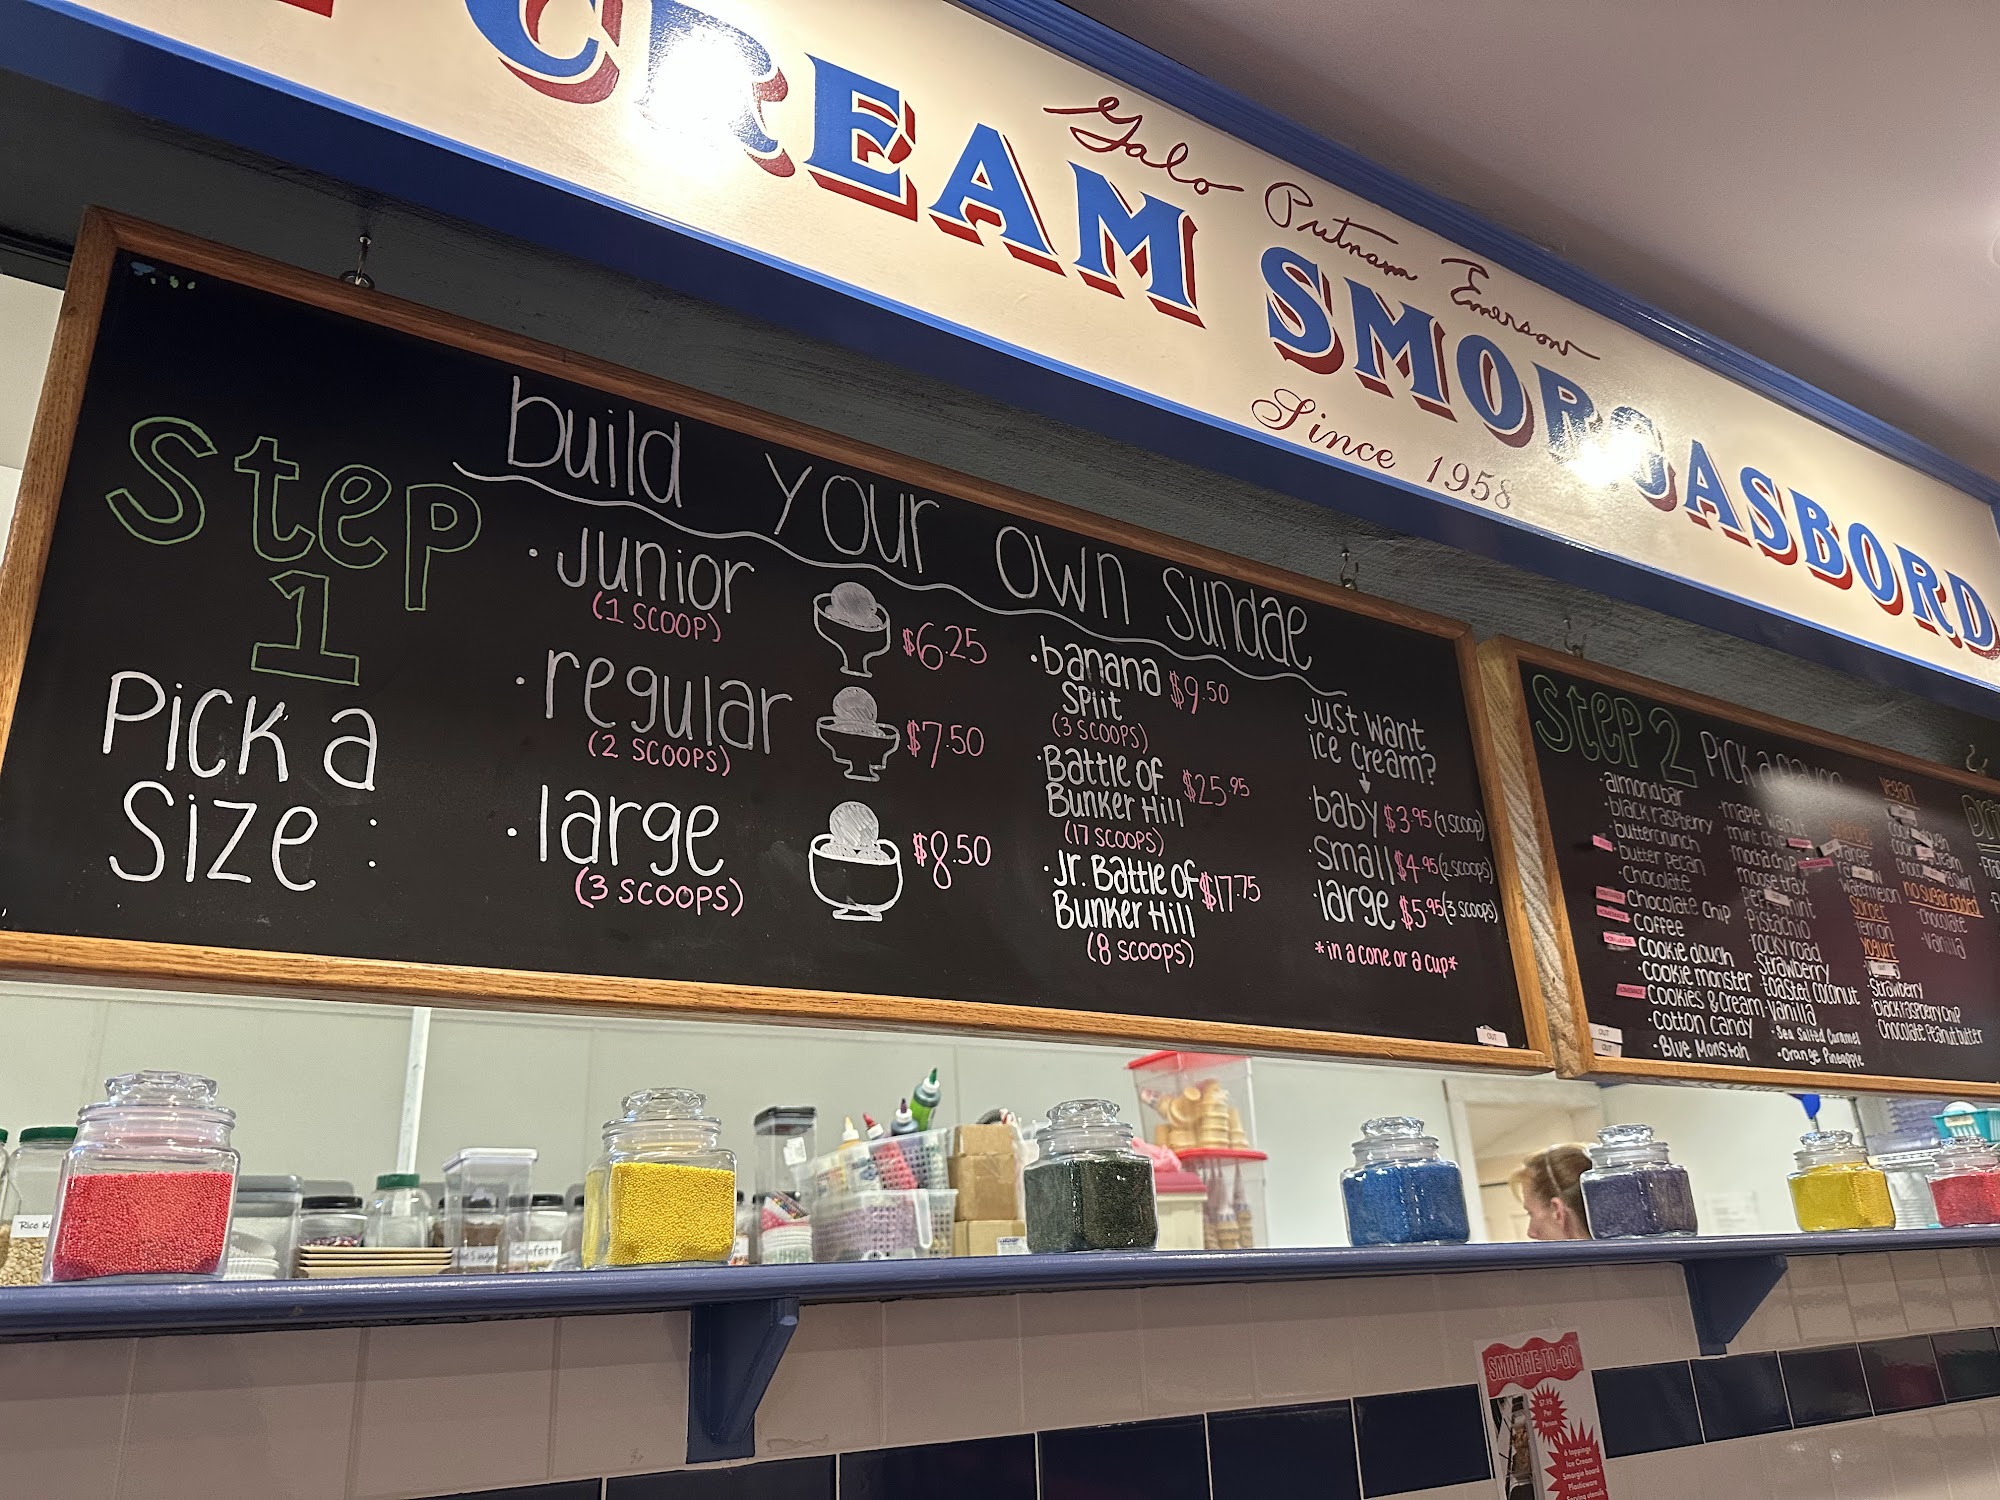 CREAM SMORGASBORD
Galo Putnam Emerson
Since 1958
Step
1
Pick a
Size:
build your own sundae
• junior
(1 SCOOP)
$6.25
• regular
(2 SCOOPS)
$7.50
• large
(3 SCOOPS)
$8.50
• banana
split
$9.50
(3 SCOOPS)
• Battle of
Bunker Hill
$25.95
(17 SCOOPS)
• Jr. Battle of
Bunker Hill
$17.75
(8 SCOOPS)
Just want
ice cream?
• baby $3.95 (1 scoop)
• small $4.95 (2 scoops)
• large $5.95 (3 scoops)
*in a cone or a cup*
OUT
Step 2
Pick a
• almond bar
• black raspberry
• buttercrunch
• butter pecan
• chocolate
• chocolate chip
• coffee
• cookie dough
• cookie monster
• cookies & cream
• cotton candy
• Blue Monstah
HOMEMADE
OUT
OUT
• maple walnut
• mint chip
• mocha chip
• moose trax
• peppermint
• Pistachio
• rocky road
• Strawberry
• toasted coconut
• vanilla
• Sea Salted Caramel
• Orange Pineapple
orange
watermelon
Sorbet
lemon
yogurt
OUT
• Strawberry
• black raspberry chip
• Chocolate Peanut butter
vegan
no sugar added
• chocolate
• vanilla
SMORGIE TO-GO
$7.95
Per
Person
6 toppings
Ice Cream
Smorgie board
Plasticware
Serving utensils